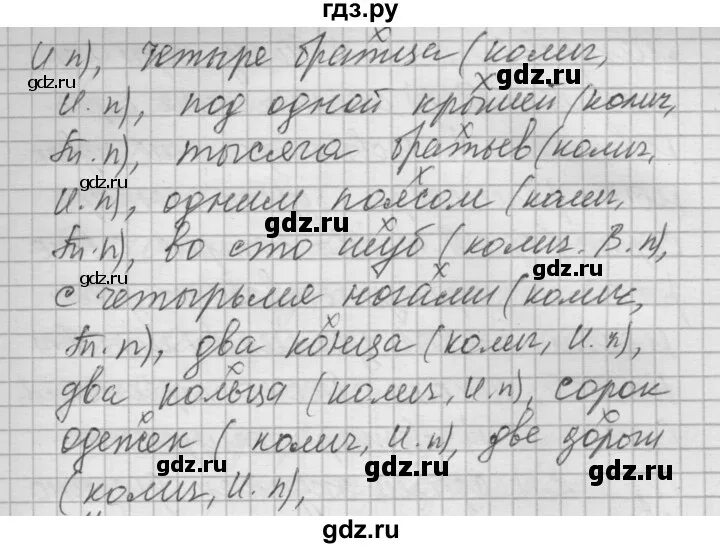 гдз.ру
И п), четыре братца (колич,
И. п), под одной крышей (колич,
Тп. п), тысяча братьев (колич,
И. п), одним поясом (колич,
Тп. п), во сто шуб (колич. В. п),
с четырьмя ногами (колич,
Тп. п), два конца (колич, И. п),
два кольца (колич, И. п), сорок
одежек (колич, И. п), две дороги
(колич, И. п),
gdz.ru
gdz.ru
gdz.ru
gdz.ru
gdz.ru
gdz.ru
gdz.ru
gdz.ru
gdz.ru
gdz.ru
gdz.ru
gdz.ru
gdz.ru
gdz.ru